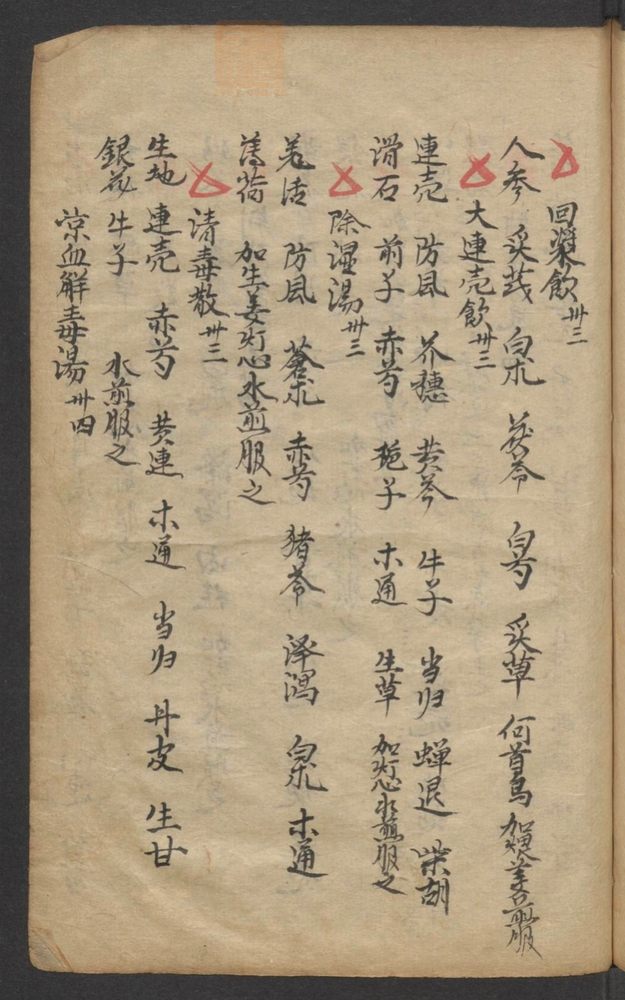 回漿飲 卅三
人参 炙茋 白朮 茯苓 白芍 炙草 何首烏 加棗姜煎服
大連壳飲 卅三
連壳 防风 芥穗 黄芩 牛子 当归 蟬退 柴胡
滑石 前子 赤芍 梔子 木通 生草 加灯心水煎服之
除湿湯 卅三
羌活 防风 蒼朮 赤芍 猪苓 泽瀉 白朮 木通
薄荷 加生姜灯心水煎服之
清毒散 卅三
生地 連壳 赤芍 黄連 木通 当归 丹皮 生甘
銀花 牛子 水煎服之
凉血解毒湯 卅四